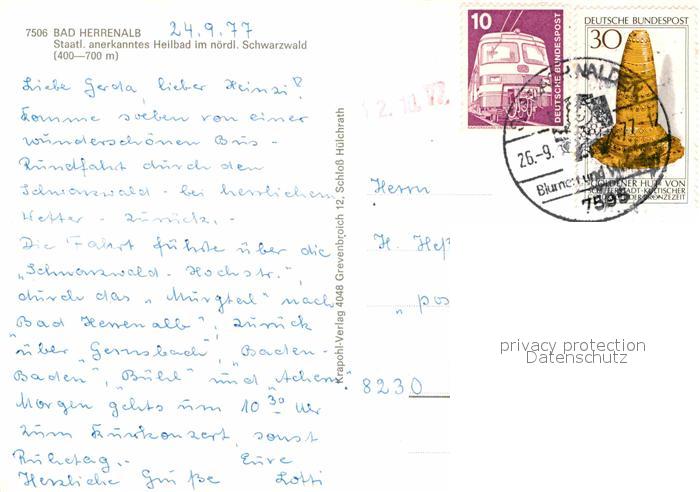 7506 BAD HERRENALB 24.9.77
Staatl. anerkanntes Heilbad im nördl. Schwarzwald
(400—700 m)
Liebe Gerda, lieber Heinzi!
Komme soeben von einer
wunderschönen Bus-
Rundfahrt durch den
Schwarzwald - bei herrlichem
Wetter - zurück. -
Die Fahrt führte über die
„Schwarzwald-Hochstr.",
durch das „Murgtal" nach
"Bad Herrenalb", zurück
über "Gernsbach", "Baden-
Baden", "Bühl" und "Achern".
Morgen gehts um 10 30 Uhr
zum Kurkonzert, sonst
Ruhetag.- Eure
Herzliche Grüße Lotti
Krapohl-Verlag 4048 Grevenbroich 12, Schloß Hülchrath
10
DEUTSCHE BUNDESPOST
DEUTSCHE BUNDESPOST
30
GOLDENER HUT VON
SCHIFFERSTADT-KELTISCHER
BRONZEZEIT
26.-9.
77
Blumen und
7595
12. 10. 77
Herrn
H. Heß
„ pos
8230
privacy protection
Datenschutz